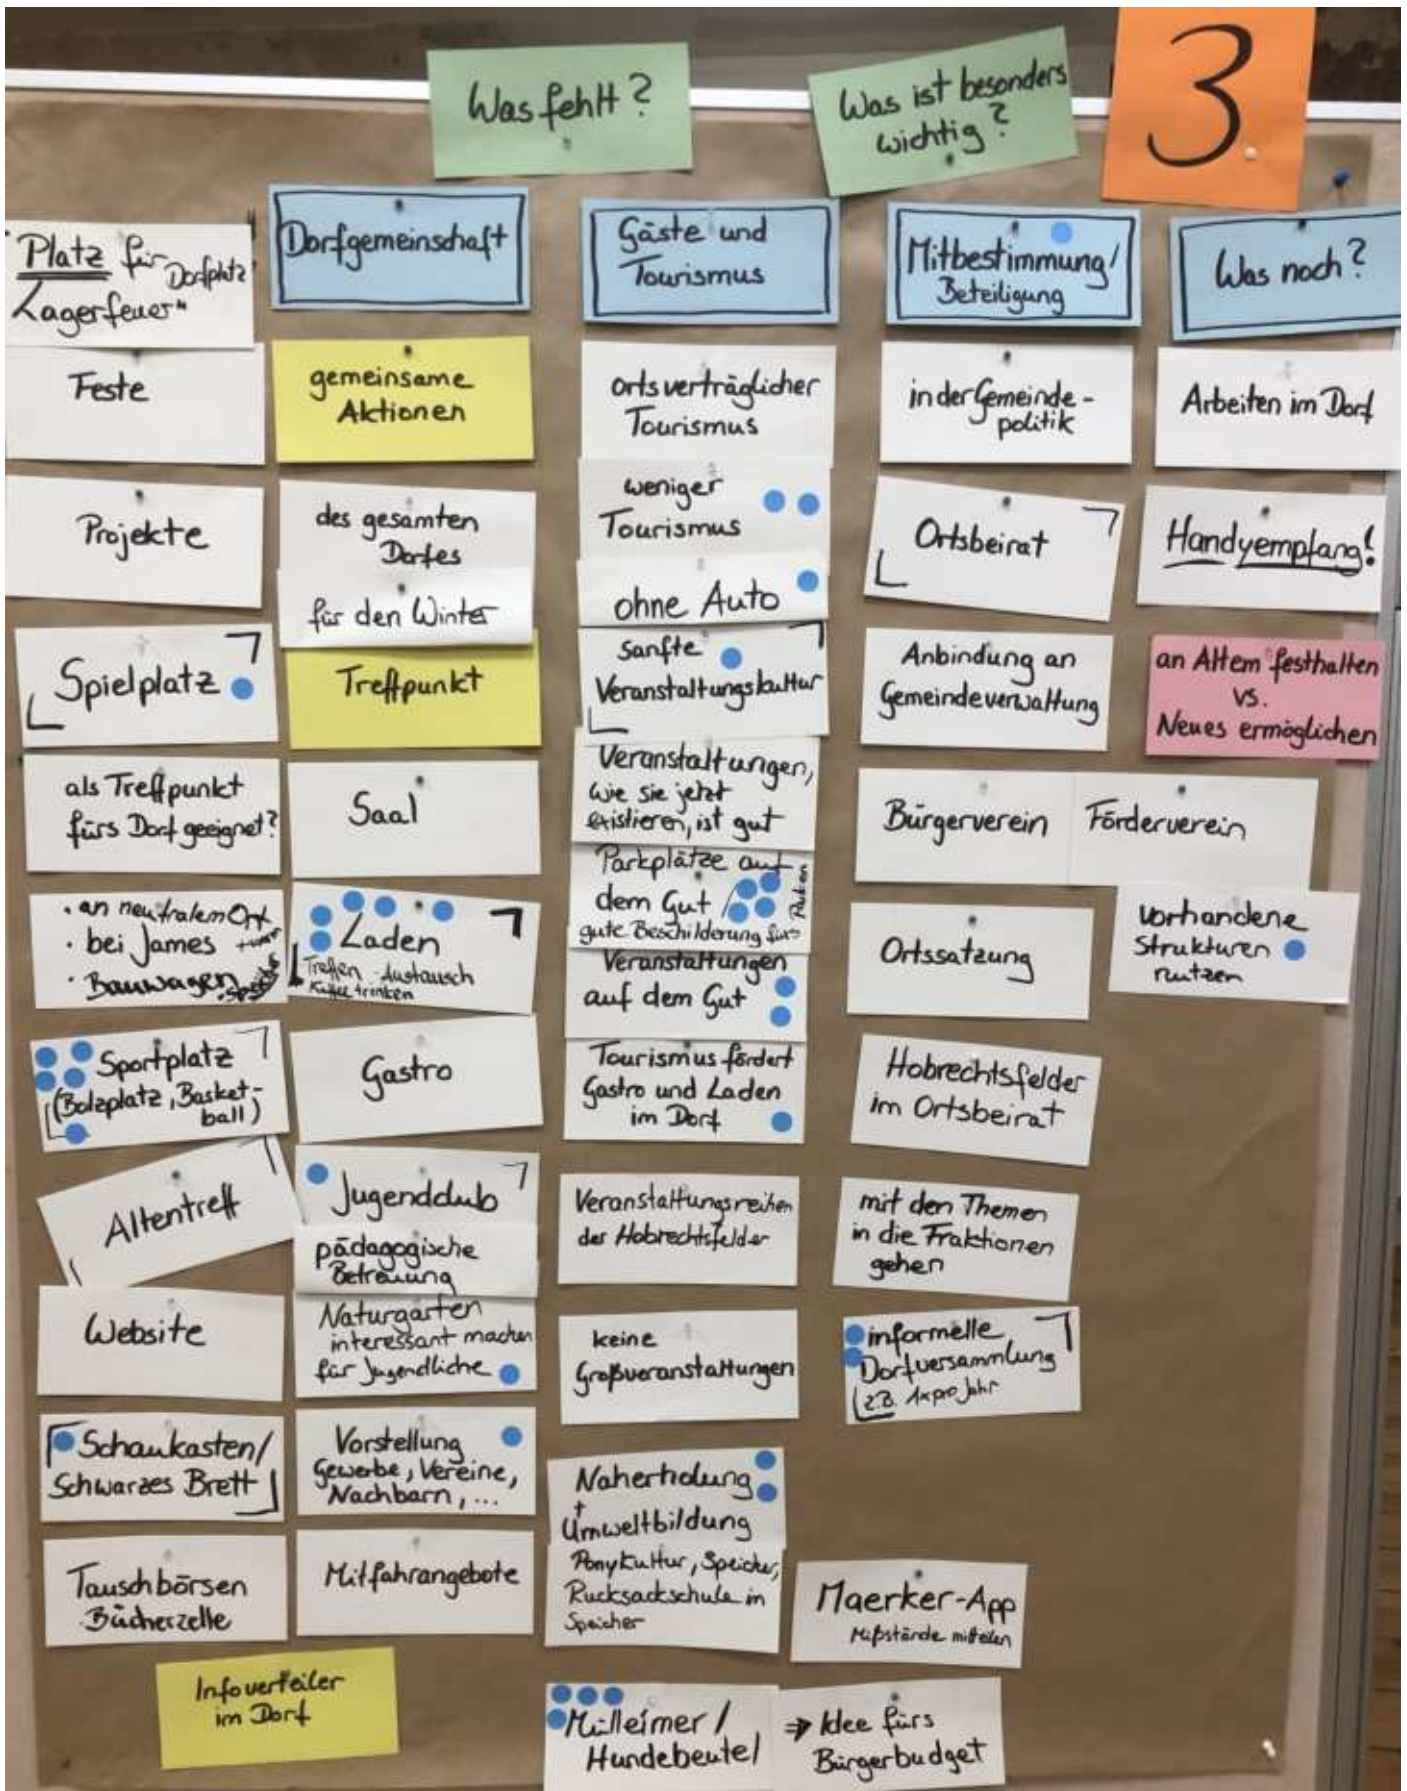 Was fehlt?
Was ist besonders
wichtig?
3.
"Platz für Dorfplatz
Lagerfeuer"
Feste
Projekte
Spielplatz
als Treffpunkt
fürs Dorf geeignet?
• an neutralem Ort
• bei James
• Bauwagen
Sportplatz
(Bolzplatz, Basket-
ball)
Altentreff
Website
Schaukasten/
Schwarzes Brett
Tauschbörsen
Bücherzelle
Infoverteiler
im Dorf
Dorfgemeinschaft
gemeinsame
Aktionen
des gesamten
Dorfes
für den Winter
Treffpunkt
Saal
Laden
Treffen - Austausch
Kaffee trinken
Gastro
Jugendclub
pädagogische
Betreuung
Naturgarten
interessant machen
für Jugendliche
Vorstellung
Gewerbe, Vereine,
Nachbarn, ...
Mitfahrangebote
Gäste und
Tourismus
ortsverträglicher
Tourismus
weniger
Tourismus
ohne Auto
sanfte
Veranstaltungskultur
Veranstaltungen,
wie sie jetzt
existieren, ist gut
Parkplätze auf
dem Gut /
gute Beschilderung fürs Parken
Veranstaltungen
auf dem Gut
Tourismus fördert
Gastro und Laden
im Dorf
Veranstaltungsreihen
der Hobrechtsfelder
keine
Großveranstaltungen
Naherholung
+
Umweltbildung
Ponykultur, Speicher,
Rucksackschule in
Speicher
Mülleimer /
Hundebeutel
Mitbestimmung/
Beteiligung
in der Gemeinde-
politik
Ortsbeirat
Anbindung an
Gemeindeverwaltung
Bürgerverein
Förderverein
Ortssatzung
Hobrechtsfelder
im Ortsbeirat
mit den Themen
in die Fraktionen
gehen
informelle
Dorfversammlung
z.B. 1x pro Jahr
Maerker-App
Mißstände mitteilen
⇒ Idee fürs
Bürgerbudget
Was noch?
Arbeiten im Dorf
Handyempfang!
an Altem festhalten
vs.
Neues ermöglichen
vorhandene
Strukturen
nutzen